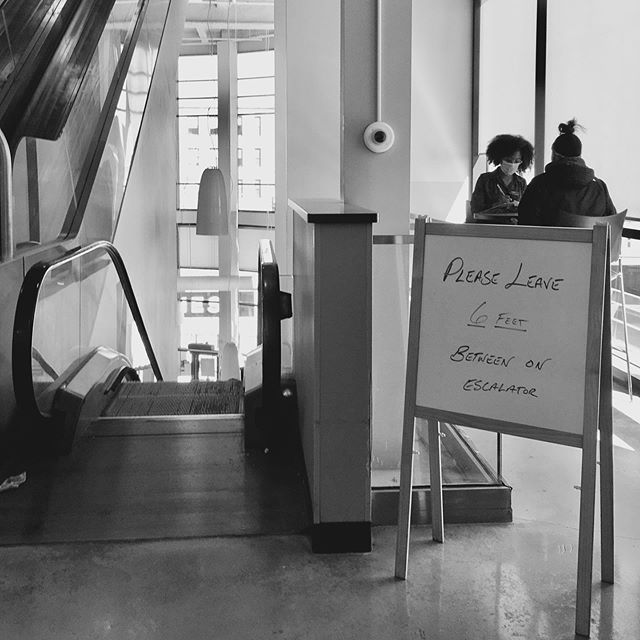 PLEASE LEAVE
6 FEET
BETWEEN ON
ESCALATOR